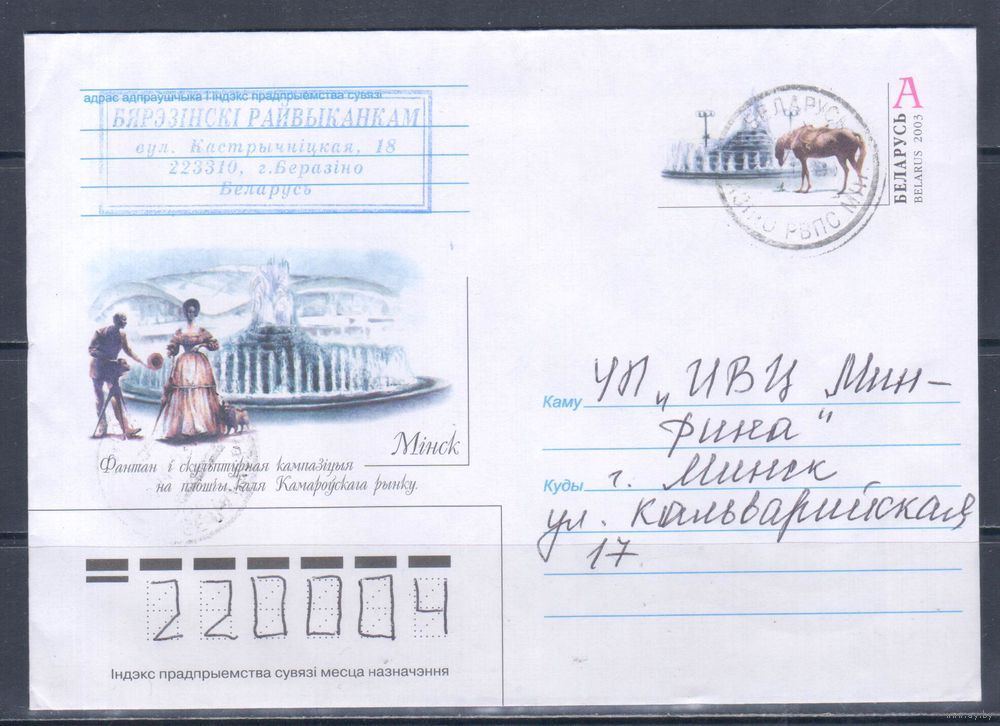 адрас адпраўшчыка і індэкс прадпрыемства сувязі
БЯРЭЗІНСКІ РАЙВЫКАНКАМ
вул. Кастрычніцкая, 18
223310, г.Беразіно
Беларусь
БЕЛАРУСЬ
РВПС
A
БЕЛАРУСЬ
BELARUS 2003
Мінск
Фантан і скульптурная кампазіцыя
на плошчы каля Камароўскага рынку.
Каму УП „ИВЦ Мин-
фина“
Куды г. Минск
ул. Кальварийская
17
220004
Індэкс прадпрыемства сувязі месца назначэння